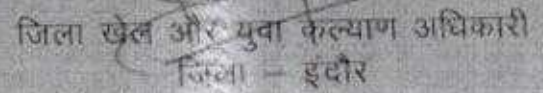 जिला खेल और युवा कल्याण अधिकारी
जिला – इंदौर